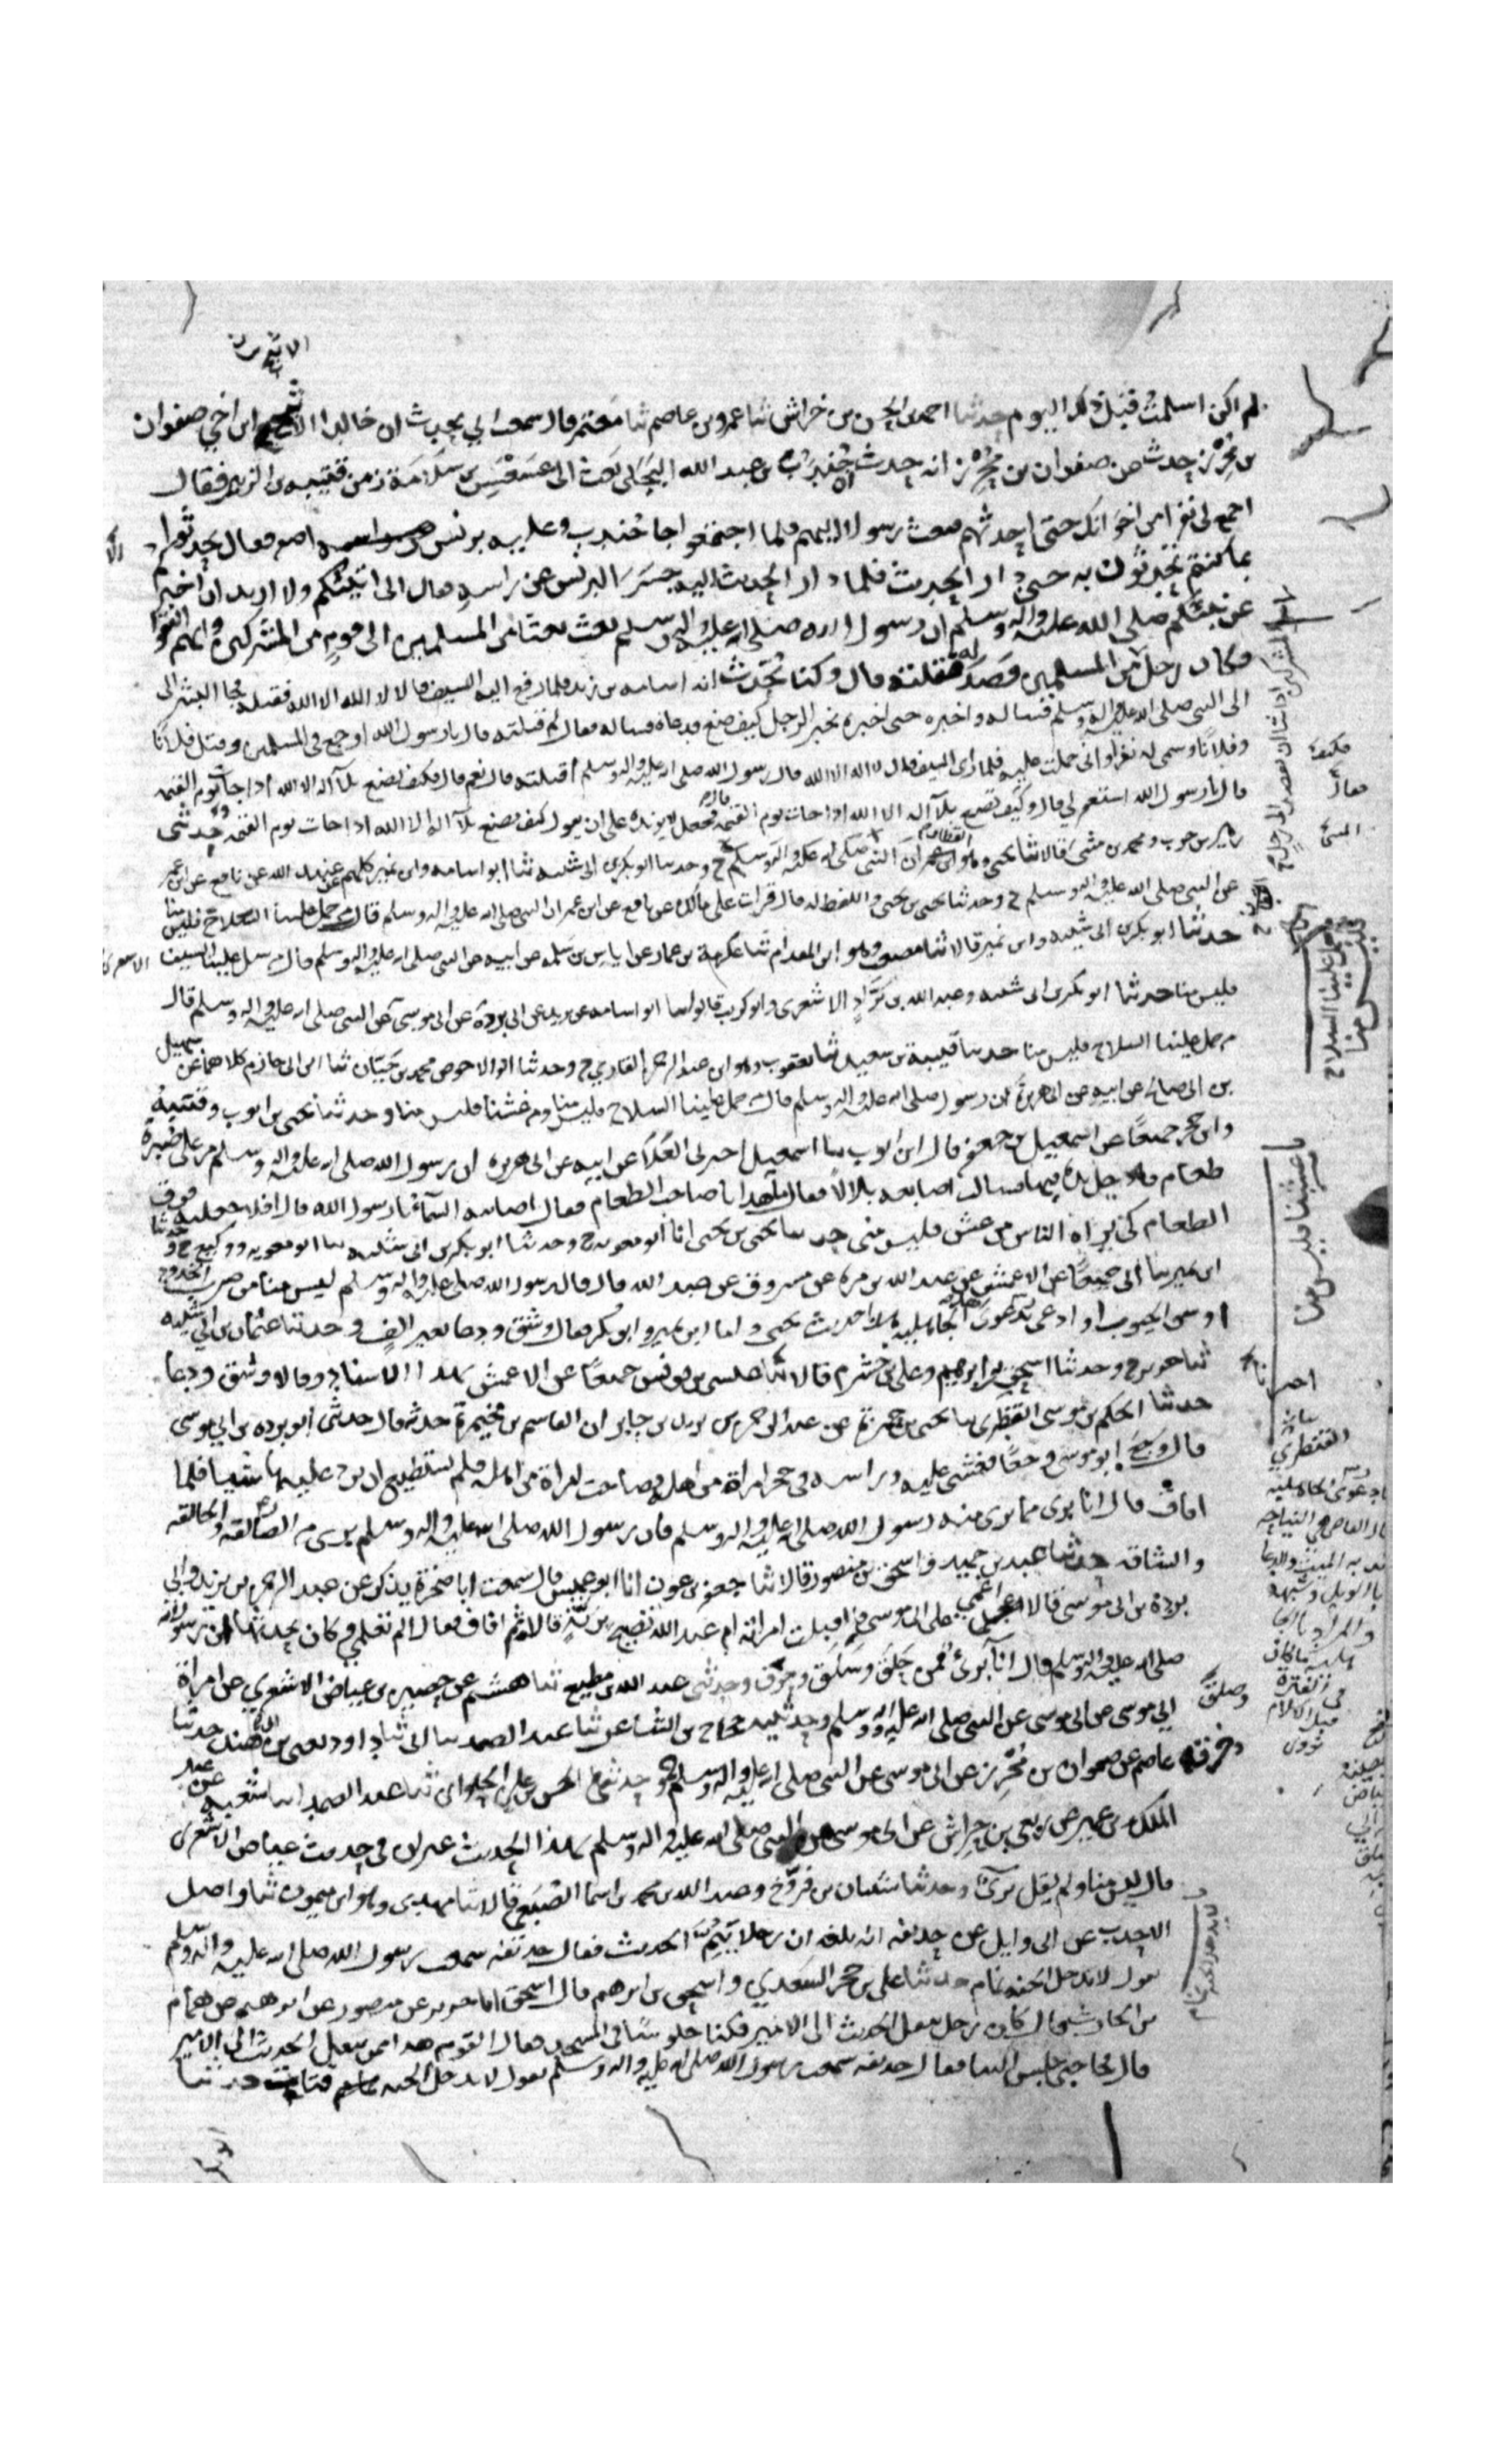 الاثبج
لم اكن اسلمت قبل ذلك اليوم حدثنا احمد بن الحسن بن خراش ثنا عمرو بن عاصم ثنا معتمر قال سمعت ابي يحدث ان خالدا الاثبج ابن اخي صفوان
بن محرز حدث عن صفوان بن محرز انه حدث ان جندب بن عبد الله البجلي بعث الى عسعس بن سلامة زمن فتنة بن الزبير فقال
اجمع لي نفرا من اخوانك حتى احدثهم فبعث رسولا اليهم فلما اجتمعوا جا جندب وعليه برنس اصفر فقال تحدثوا
بما كنتم تحدثون به حتى دار الحديث فلما دار الحديث اليه حسر البرنس عن راسه فقال اني اتيتكم ولا اريد ان اخبركم
عن نبيكم صلى الله عليه واله وسلم ان رسول الله صلى الله عليه واله وسلم بعث بعثا من المسلمين الى قوم من المشركين وانهم التقوا
فكان رجل من المسلمين قصد له فقتله قال وكنا نحدث انه اسامة بن زيد فلما رفع اليه السيف قال لا اله الا الله فقتله فجا البشير الى
الى النبي صلى الله عليه واله وسلم فساله واخبره حتى اخبره بخبر الرجل كيف صنع فدعاه فساله فقال لم قتلته قال يا رسول الله اوجع في المسلمين وقتل فلانا
وفلانا وسمى له نفرا واني حملت عليه فلما راى السيف قال لا اله الا الله قال رسول الله صلى الله عليه واله وسلم اقتلته قال نعم قال فكيف تصنع بلا اله الا الله اذا جات يوم القيمة
قال يا رسول الله استغفر لي قال وكيف تصنع بلا اله الا الله اذا جات يوم القيمة قال فجعل لا يزيده على ان يقول كيف تصنع بلا اله الا الله اذا جات يوم القيمة حدثني
زهير بن حرب ومحمد بن مثنى قالا ثنا يحيى وهو القطان ابن عمر ان النبي صلى الله عليه واله وسلم ح وحدثنا ابو بكر بن ابي شيبة ثنا ابو اسامة وابن نمير كلهم عن عبيد الله عن نافع عن ابن عمر
عن النبي صلى الله عليه واله وسلم ح وحدثنا يحيى بن يحيى واللفظ له قال قرات على مالك عن نافع عن ابن عمر ان النبي صلى الله عليه واله وسلم قال من حمل علينا السلاح فليس منا
حدثنا ابو بكر بن ابي شيبة وابن نمير قالا ثنا مصعب وهو ابن المقدام ثنا عكرمة بن عمار عن اياس بن سلمة عن ابيه عن النبي صلى الله عليه واله وسلم قال من سل علينا السيف
فليس منا حدثنا ابو بكر بن ابي شيبة وعبد الله بن براد الاشعري وابو كريب قالوا ثنا ابو اسامة عن بريد عن ابي بردة عن ابي موسى عن النبي صلى الله عليه واله وسلم قال
من حمل علينا السلاح فليس منا حدثنا قتيبة بن سعيد ثنا يعقوب وهو ابن عبد الرحمن القاري ح وحدثنا ابو الاحوص محمد بن حيان ثنا ابن ابي حازم كلاهما عن سهيل
بن ابي صالح عن ابيه عن ابي هريرة ان رسول صلى الله عليه واله وسلم قال من حمل علينا السلاح فليس منا ومن غشنا فليس منا وحدثنا يحيى بن ايوب وقتيبة
وابن حجر جميعا عن اسمعيل بن جعفر قال ابن ايوب ثنا اسمعيل اخبرني العلا عن ابيه عن ابي هريرة ان رسول الله صلى الله عليه واله وسلم مر على صبرة
طعام فادخل يده فيها فنالت اصابعه بللا فقال ما هذا يا صاحب الطعام فقال اصابته السماء يا رسول الله قال افلا جعلته فوق
الطعام كي يراه الناس من غش فليس مني حدثنا يحيى بن يحيى انا ابو معوية ح وحدثنا ابو بكر بن ابي شيبة ثنا ابو معوية ووكيع ح وحدثنا
ابن نمير ثنا ابي جميعا عن الاعمش عن عبد الله بن مرة عن مسروق عن عبد الله قال قال رسول الله صلى الله عليه واله وسلم ليس منا من ضرب الخدود
او شق الجيوب او ادعى بدعوى الجاهلية هذا حديث يحيى واما ابن نمير وابو بكر فقالا وشق ودعا بغير الف وحدثنا عثمان بن ابي شيبة
ثنا جرير ح وحدثنا اسحق بن ابرهيم وعلي بن خشرم قالا ثنا عيسى بن يونس جميعا عن الاعمش بهذا الاسناد وقالا وشق ودعا
حدثنا الحكم بن موسى القنطري ثنا يحيى بن حمزة عن عبد الرحمن بن يزيد بن جابر ان القاسم بن مخيمرة حدثه قال حدثني ابو بردة بن ابي موسى
قال وجع ابو موسى وجعا فغشي عليه وراسه في حجر امراة من اهله فصاحت امراة من اهله فلم يستطيع ان يرد عليها شيا فلما
افاق قال انا بري مما بري منه رسول الله صلى الله عليه واله وسلم فان رسول الله صلى الله عليه واله وسلم بري من الصالقة والحالقة
والشاقة حدثنا عبد بن حميد واسحق بن منصور قالا ثنا جعفر بن عون انا ابو عميس قال سمعت ابا صخرة يذكر عن عبد الرحمن بن يزيد وابي
بردة بن ابي موسى قالا اغمي على ابي موسى فاقبلت امراته ام عبد الله تصيح برنة قالا ثم افاق فقال الم تعلمي وكان يحدثها ان رسول الله
صلى الله عليه واله وسلم قال انا بري ممن حلق وسلق وخرق وحدثني عبد الله بن مطيع ثنا هشيم عن حصين بن عياض الاشعري عن امراة
ابي موسى عن ابي موسى عن النبي صلى الله عليه واله وسلم وحدثنيه حجاج بن الشاعر ثنا عبد الصمد ثنا ابي ثنا داود يعني بن ابي هند حدثنا
عاصم عن صفوان بن محرز عن ابي موسى عن النبي صلى الله عليه واله وسلم ح وحدثني الحسن بن علي الحلواني ثنا عبد الصمد انا شعبة عن عبد
الملك بن عمير عن ربعي بن حراش عن ابي موسى عن النبي صلى الله عليه واله وسلم بهذا الحديث غير ان في حديث عياض الاشعري
قال ليس منا ولم يقل بري وحدثنا شيبان بن فروخ وعبد الله بن محمد بن اسما الضبعي قالا ثنا مهدي وهو ابن ميمون ثنا واصل
الاحدب عن ابي وايل عن حذيفة انه بلغه ان رجلا ينم الحديث فقال حذيفة سمعت رسول الله صلى الله عليه واله وسلم
يقول لا يدخل الجنة نمام حدثنا علي بن حجر السعدي واسحق بن ابرهيم قال اسحق انا جرير عن منصور عن ابرهيم عن همام
بن الحارث قال كان رجل ينقل الحديث الى الامير فكنا جلوسا في المسجد فقال القوم هذا ممن ينقل الحديث الى الامير
قال فجا حتى جلس الينا فقال حذيفة سمعت رسول الله صلى الله عليه واله وسلم يقول لا يدخل الجنة قتات حدثنا
من حمل علينا السلاح
فليس منا
من غشنا فليس منا
القنطري
وصلق
لا يدخل الجنة نمام